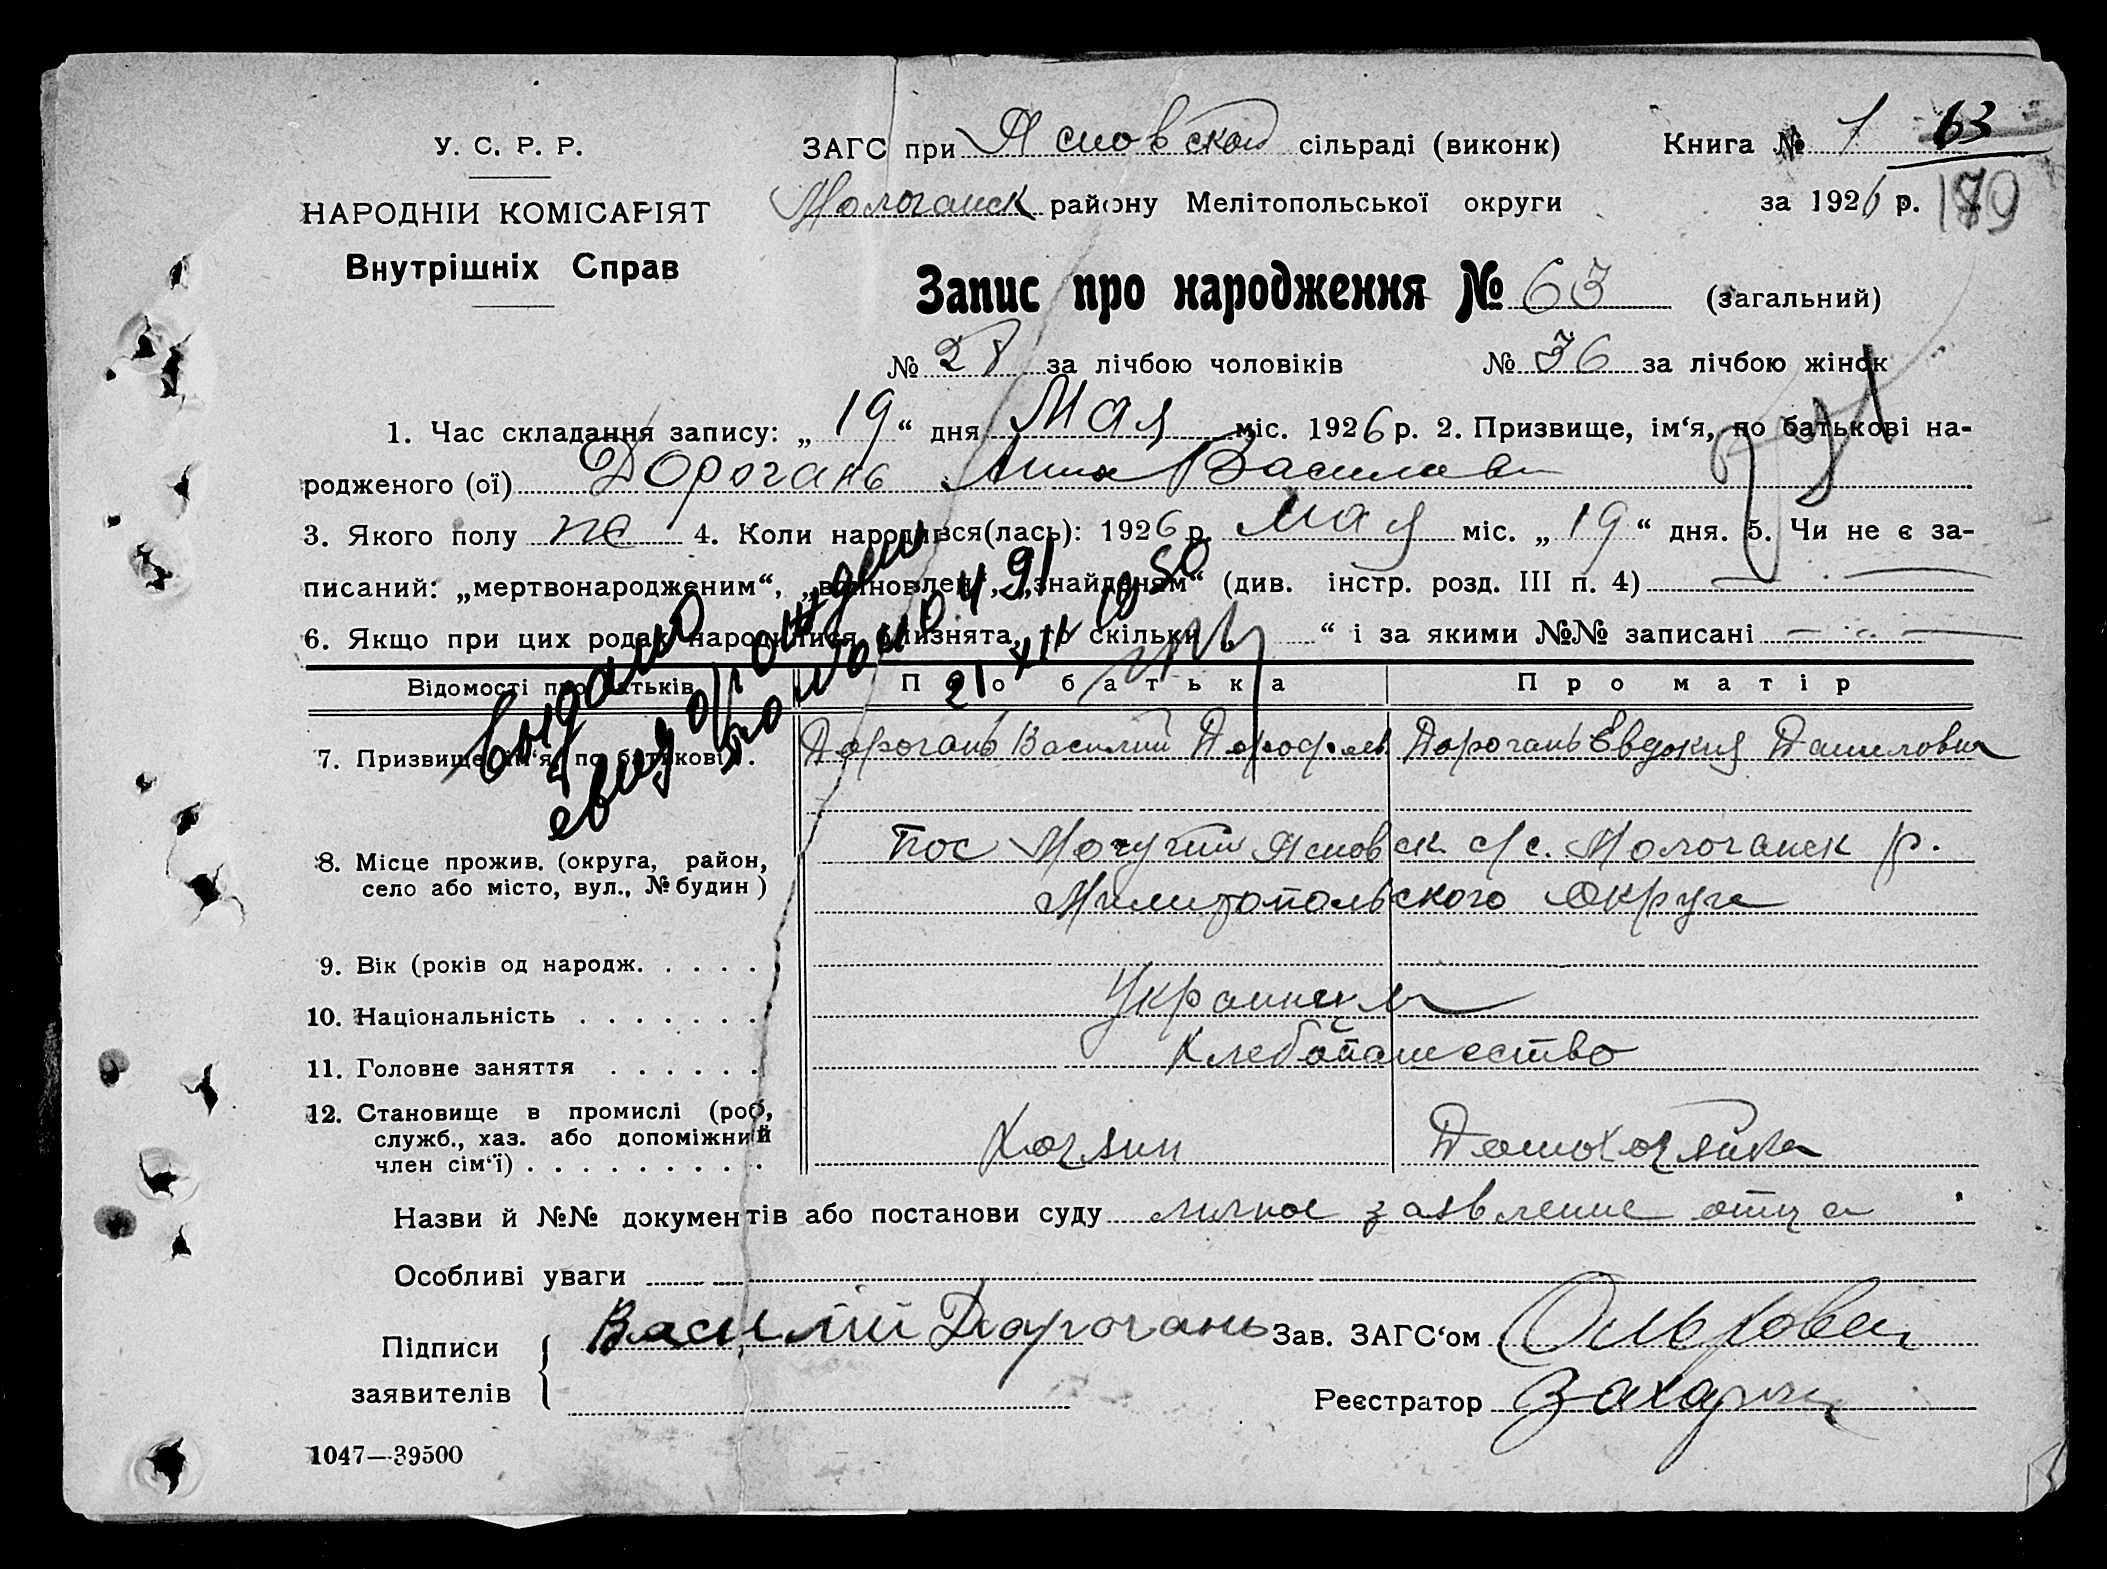 У. С. Р. Р.
НАРОДНІЙ КОМІСАРІЯТ
Внутрішніх Справ
ЗАГС при Ясновском сільраді (виконк)
Молочанск району Мелітопольської округи
Книга № 1 63
за 1926 р. 179
Запис про народження № 63 (загальний)
№ 28 за лічбою чоловіків № 36 за лічбою жінок
1. Час складання запису: „ 19 “ дня Мая міс. 1926 р. 2. Призвище, ім‘я, по батькові на-
родженого (ої) Дорогань Анна Василиев
3. Якого полу же 4. Коли народився(лась): 1926 р. мая міс. „ 19 “ дня. 5. Чи не є за-
писаний: „мертвонародженим“, „ „знайденям“ (див. інстр. розд. III п. 4)
6. Якщо при цих родах народилися близнята, то скільки „ “ і за якими №№ записані
выдано
свид о рожден
21 XII 1950
Відомості про батьків
Про батька
Про матір
7. Призвище, ім‘я, по батькові .
Дорогань Василий Дорофеев
Дорогань Евдокия Даниловна
8. Місце прожив. (округа, район,
село або місто, вул., № будин )
Пос Могучий Ясновск с/с. Молочанск р.
Мелитопольского округа
9. Вік (років од народж. . . . .
10. Національність . . . . . . .
Украинцы
11. Головне заняття . . . . . .
Хлебопашество
12. Становище в промислі (роб,
служб., хаз. або допоміжний
член сім‘ї) . . . . . . . . . .
Хозяин
Домохозяйка
Назви й №№ документів або постанови суду личное заявление отца
Особливі уваги
Підписи
заявителів
Василий Дорогань
Зав. ЗАГС‘ом
Реєстратор
1047—39500